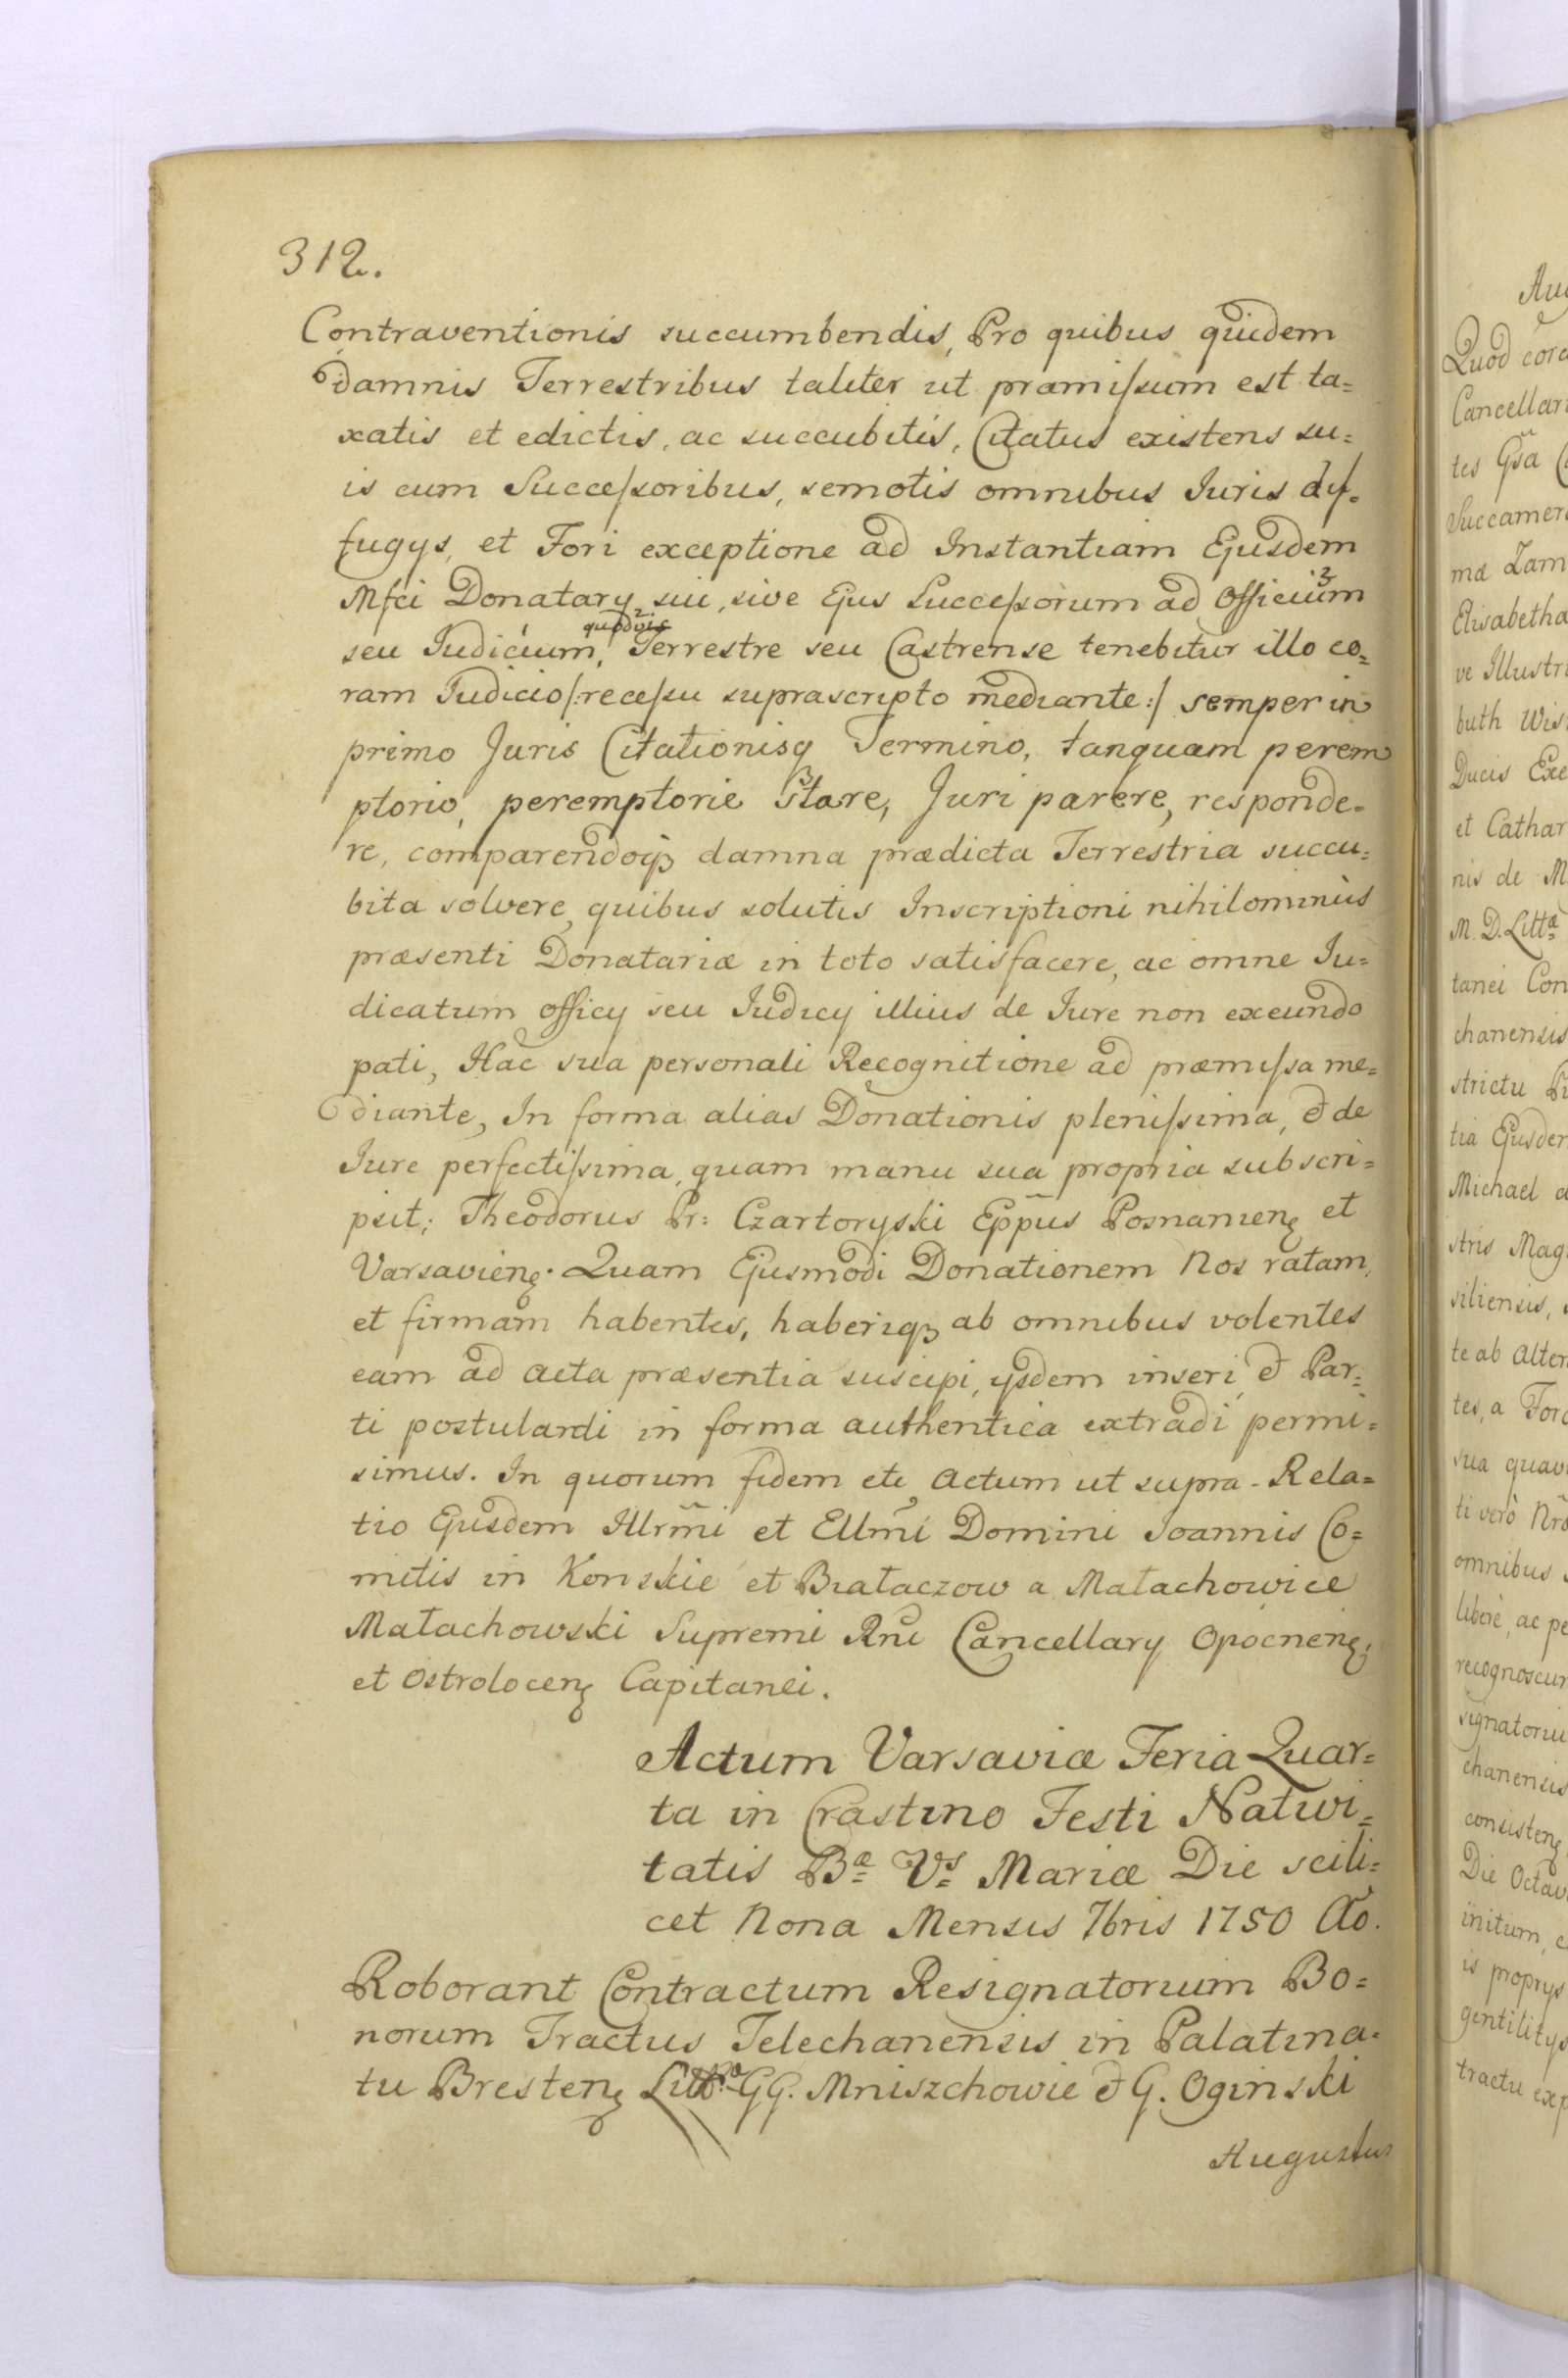 312.
Contraventionis succumbendis, Pro quibus quidem
damnis Terrestribus taliter ut præmiſsum est ta=
xatis et edictis, ac succubitis, Citatus existens su=
is cum Succeſsoribus, semotis omnibus Iuris dif=
fugys, et Fori exceptione ad Instantiam Ejusdem
Mfci Donatary sui, sive Ejus Succeſsorum ad Officium
quodvis
seu Iudicium, Terrestre seu Castrense tenebitur illo co=
ram Iudicio /:receſsu suprascripto mediante:/ semper in
primo Juris Citationisq Termino, tanquam perem
ptorio, peremptorie stare, Juri parere, responde=
re, comparendoqꝫ damna prædicta Terrestria succu=
bita solvere, quibus solutis Inscriptioni nihilominùs
præsenti Donatariæ in toto satisfacere, ac omne Iu=
dicatum officy seu Iudicy illius de Iure non exeundo
pati, Hac sua personali Recognitione ad præmiſsa me=
diante, In forma alias Donationis pleniſsima, & de
Iure perfectiſsima, quam manu sua propria subscri=
psit; Theodorus Pr: Czartoryski Eppūs Posnanieꝫ et
Varsavienꝫ. Quam Ejusmodi Donationem Nos ratam,
et firmam habentes, haberiqꝫ ab omnibus volentes
eam ad acta præsentia suscipi, ysdem inseri & Par=
ti postulanti in forma authentica extradi permi=
simus. In quorum fidem etc Actum ut supra - Rela=
tio Ejusdem Illrm̃i et Ellm̃i Domini Joannis Co=
mitis in Konskie et Białaczow a Małachowice
Małachowski Supremi Rni Cancellary Opocnenꝫ,
et Ostrolocenꝫ Capitanei.
Actum Varsaviæ Feria Quar=
ta in Crastino Festi Nativi=
tatis Bæ Vs Mariæ Die scili=
cet Nona Mensis 7bris 1750 Ao.
Roborant Contractum Resignatorium Bo=
norum Tractus Telechanensis in Palatina=
tu Brestenꝫ GG. Mniszchowie & G. Oginski
Augustus
Aug
Quod cora
Cancellari
tes Gsã
Succamer
ma Zam
Elisabetha
ve Illustri
buth Wis
Ducis Exe
et Cathar
nis de M
M. D. Littæ
tanei Con
chanensis
strictu Pi
tia Ejusdem
Michael
stris Mag
siliensis,
te ab alter
tes, a Foro
sua quav
ti verò Nrõ
omnibus
liberè, ac pe
recognoscun
signatoriu
chanensis
consistenꝫ
Die Octav
initum, c
is proprys
gentilitys
tractu exp